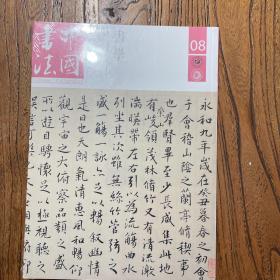 中國
書法
08
永和九年歲在癸丑暮春之初會
于會稽山陰之蘭亭脩稧事
也羣賢畢至少長咸集此地
有崇山峻領茂林脩竹又有清流激
湍暎帶左右引以為流觴曲水
列坐其次雖無絲竹管弦之
盛一觴一詠亦足以暢敘幽情
是日也天朗氣清惠風和暢仰
觀宇宙之大俯察品類之盛
所以遊目騁懷足以極視聽之
娛信可樂也夫人之相與俯仰